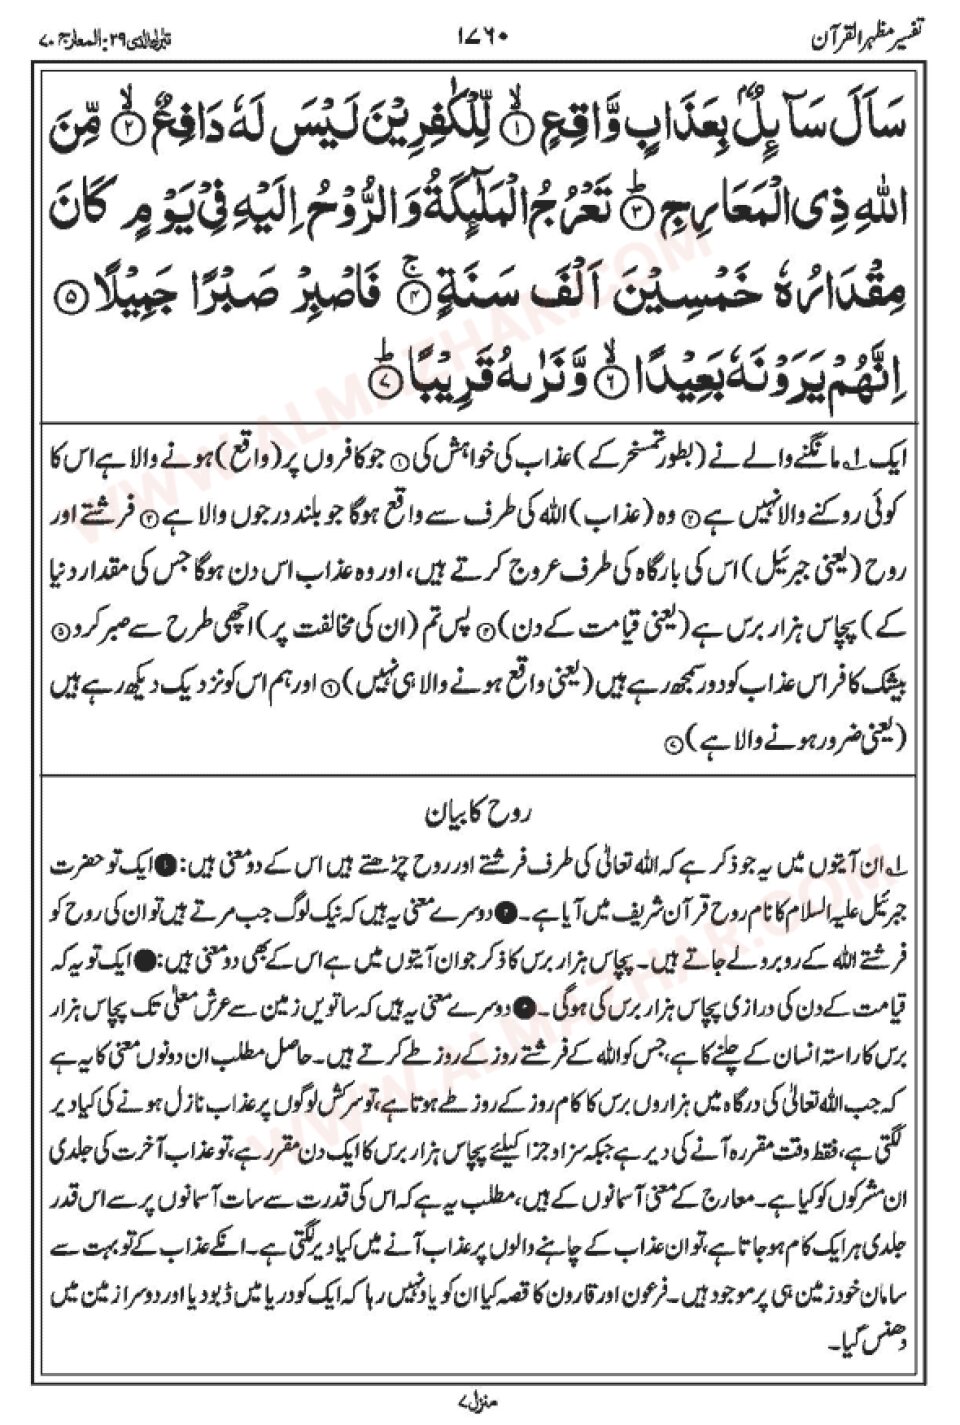 تفسیر مظہر القرآن
۱۷۶۰
تبٰرک الذی ۲۹: المعارج ۷۰
سَاَلَ سَآئِلٌۢ بِعَذَابٍ وَّاقِعٍ ۙ﴿۱﴾ لِّلْكٰفِرِيْنَ لَيْسَ لَهٗ دَافِعٌ ۙ﴿۲﴾ مِّنَ
اللّٰهِ ذِى الْمَعَارِجِ ؕ﴿۳﴾ تَعْرُجُ الْمَلٰٓئِكَةُ وَالرُّوْحُ اِلَيْهِ فِىْ يَوْمٍ كَانَ
مِقْدَارُهٗ خَمْسِيْنَ اَلْفَ سَنَةٍ ۚ﴿۴﴾ فَاصْبِرْ صَبْرًا جَمِيْلًا ﴿۵﴾
اِنَّهُمْ يَرَوْنَهٗ بَعِيْدًا ۙ﴿۶﴾ وَّنَرٰىهُ قَرِيْبًا ؕ﴿۷﴾
ایک ۱؎ مانگنے والے نے (بطور تمسخر کے) عذاب کی خواہش کی ﴿۱﴾ جو کافروں پر (واقع) ہونے والا ہے اس کا
کوئی روکنے والا نہیں ہے ﴿۲﴾ وہ (عذاب) اللہ کی طرف سے واقع ہوگا جو بلند درجوں والا ہے ﴿۳﴾ فرشتے اور
روح (یعنی جبرئیل) اس کی بارگاہ کی طرف عروج کرتے ہیں، اور وہ عذاب اس دن ہوگا جس کی مقدار دنیا
کے) پچاس ہزار برس ہے (یعنی قیامت کے دن) ﴿۴﴾ پس تم (ان کی مخالفت پر) اچھی طرح سے صبر کرو ﴿۵﴾
بیشک کافر اس عذاب کو دور سمجھ رہے ہیں (یعنی واقع ہونے والا ہی نہیں) ﴿۶﴾ اور ہم اس کو نزدیک دیکھ رہے ہیں
(یعنی ضرور ہونے والا ہے) ﴿۷﴾
روح کا بیان
۱؎ ان آیتوں میں یہ جو ذکر ہے کہ اللہ تعالیٰ کی طرف فرشتے اور روح چڑھتے ہیں اس کے دو معنی ہیں: ۱ ایک تو حضرت
جبرئیل علیہ السلام کا نام روح قرآن شریف میں آیا ہے۔ ۲ دوسرے معنی یہ ہیں کہ نیک لوگ جب مرتے ہیں تو ان کی روح کو
فرشتے اللہ کے روبرو لے جاتے ہیں۔ پچاس ہزار برس کا ذکر جو ان آیتوں میں ہے اس کے بھی دو معنی ہیں: ایک تو یہ کہ
قیامت کے دن کی درازی پچاس ہزار برس کی ہوگی۔ دوسرے معنی یہ ہیں کہ ساتویں زمین سے عرش معلّٰی تک پچاس ہزار
برس کا راستہ انسان کے چلنے کا ہے، جس کو اللہ کے فرشتے روز کے روز طے کرتے ہیں۔ حاصل مطلب ان دونوں معنی کا یہ ہے
کہ جب اللہ تعالیٰ کی درگاہ میں ہزاروں برس کا کام روز کے روز طے ہوتا ہے، تو سرکش لوگوں پر عذاب نازل ہونے کی کیا دیر
لگتی ہے، فقط وقت مقررہ آنے کی دیر ہے جبکہ سزا و جزا کیلئے پچاس ہزار برس کا ایک دن مقرر ہے، تو عذاب آخرت کی جلدی
ان مشرکوں کو کیا ہے۔ معارج کے معنی آسمانوں کے ہیں، مطلب یہ ہے کہ اس کی قدرت سے سات آسمانوں پر سے اس قدر
جلدی ہر ایک کام ہو جاتا ہے، تو ان عذاب کے چاہنے والوں پر عذاب آنے میں کیا دیر لگتی ہے۔ انکے عذاب کے تو بہت سے
سامان خود زمین ہی پر موجود ہیں۔ فرعون اور قارون کا قصہ کیا ان کو یاد نہیں رہا کہ ایک کو دریا میں ڈبو دیا اور دوسرا زمین میں
دھنس گیا۔
منزل ۷
WWW.ALMAZHAR.COM
WWW.ALMAZHAR.COM